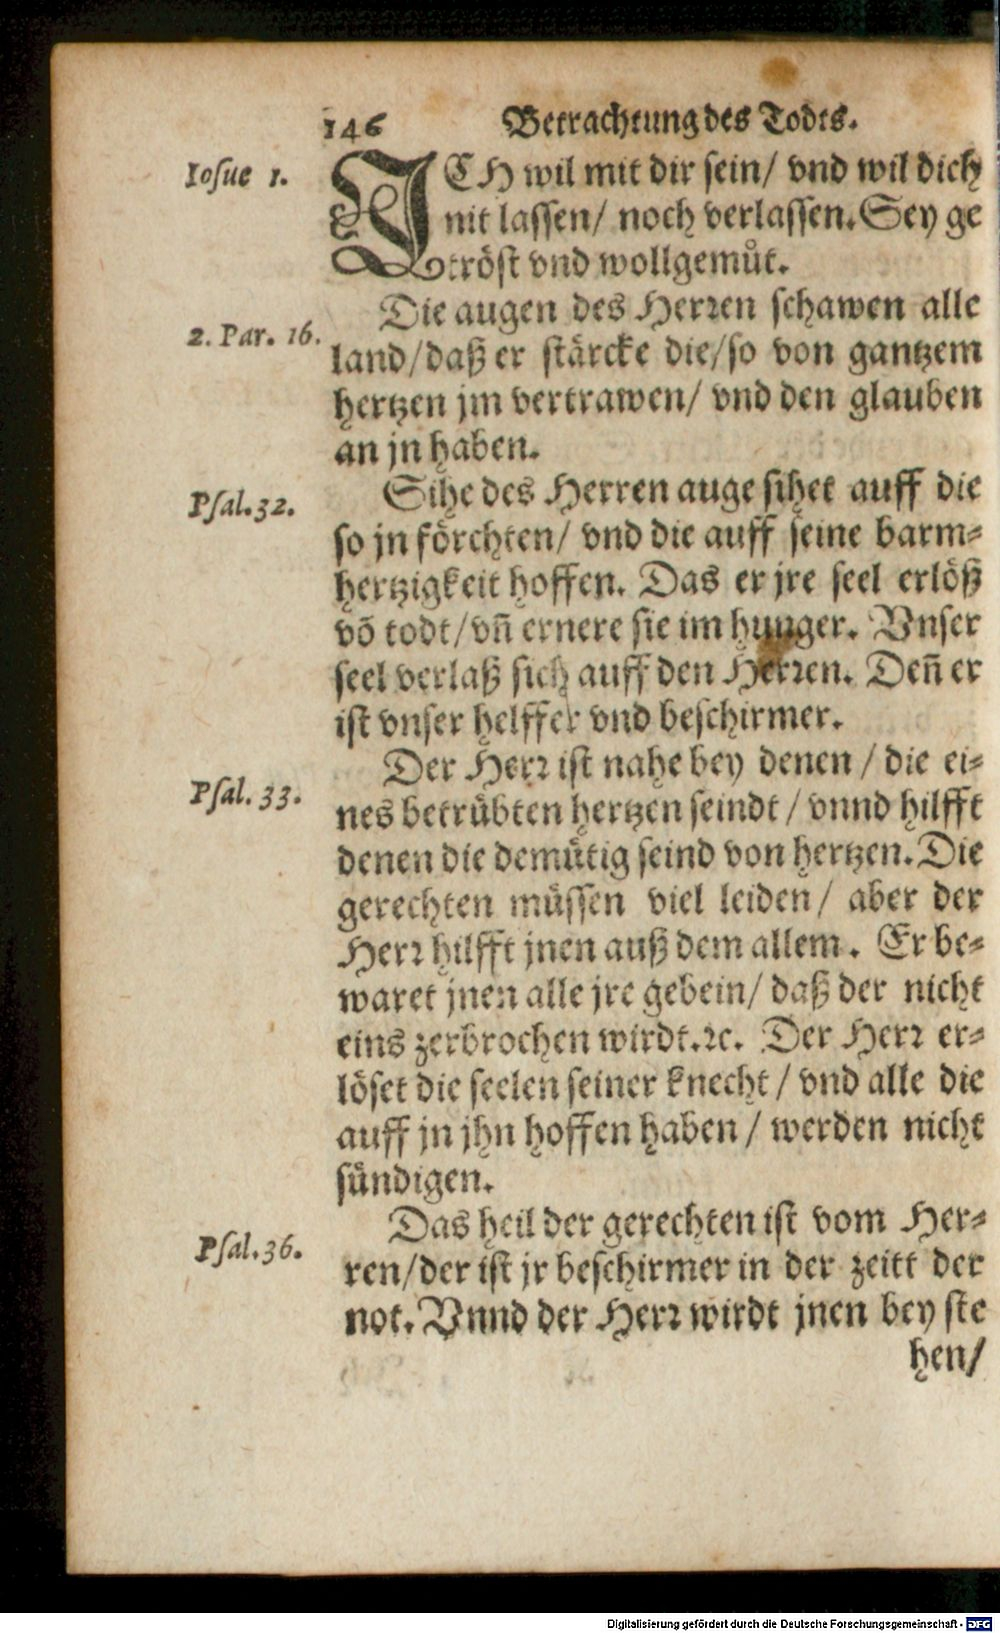 146 Betrachtung des Todts.
Iosue 1.
ICH wil mit dir sein/ vnd wil dich
nit lassen/ noch verlassen. Sey ge
tröst vnd wollgemuͦt.
2. Par. 16.
Die augen des Herren schawen alle
land/ daß er stärcke die/ so von gantzem
hertzen jm vertrawen/ vnd den glauben
an jn haben.
Psal. 32.
Sihe des Herren auge sihet auff die
so jn förchten/ vnd die auff seine barm⸗
hertzigkeit hoffen. Das er jre seel erlöß
võ todt/ vñ ernere sie im hunger. Vnser
seel verlaß sich auff den Herren. Deñ er
ist vnser helffer vnd beschirmer.
Psal. 33.
Der Herr ist nahe bey denen / die ei⸗
nes betrübten hertzen seindt / vnnd hilfft
denen die demütig seind von hertzen. Die
gerechten müssen viel leiden / aber der
Herr hilfft jnen auß dem allem. Er be⸗
waret jnen alle jre gebein/ daß der nicht
eins zerbrochen wirdt. ꝛc. Der Herr er⸗
löset die seelen seiner knecht / vnd alle die
auff jn jhn hoffen haben / werden nicht
sündigen.
Psal. 36.
Das heil der gerechten ist vom Her⸗
ren/ der ist jr beschirmer in der zeitt der
not. Vnnd der Herr wirdt jnen bey ste
hen/
Digitalisierung gefördert durch die Deutsche Forschungsgemeinschaft - DFG